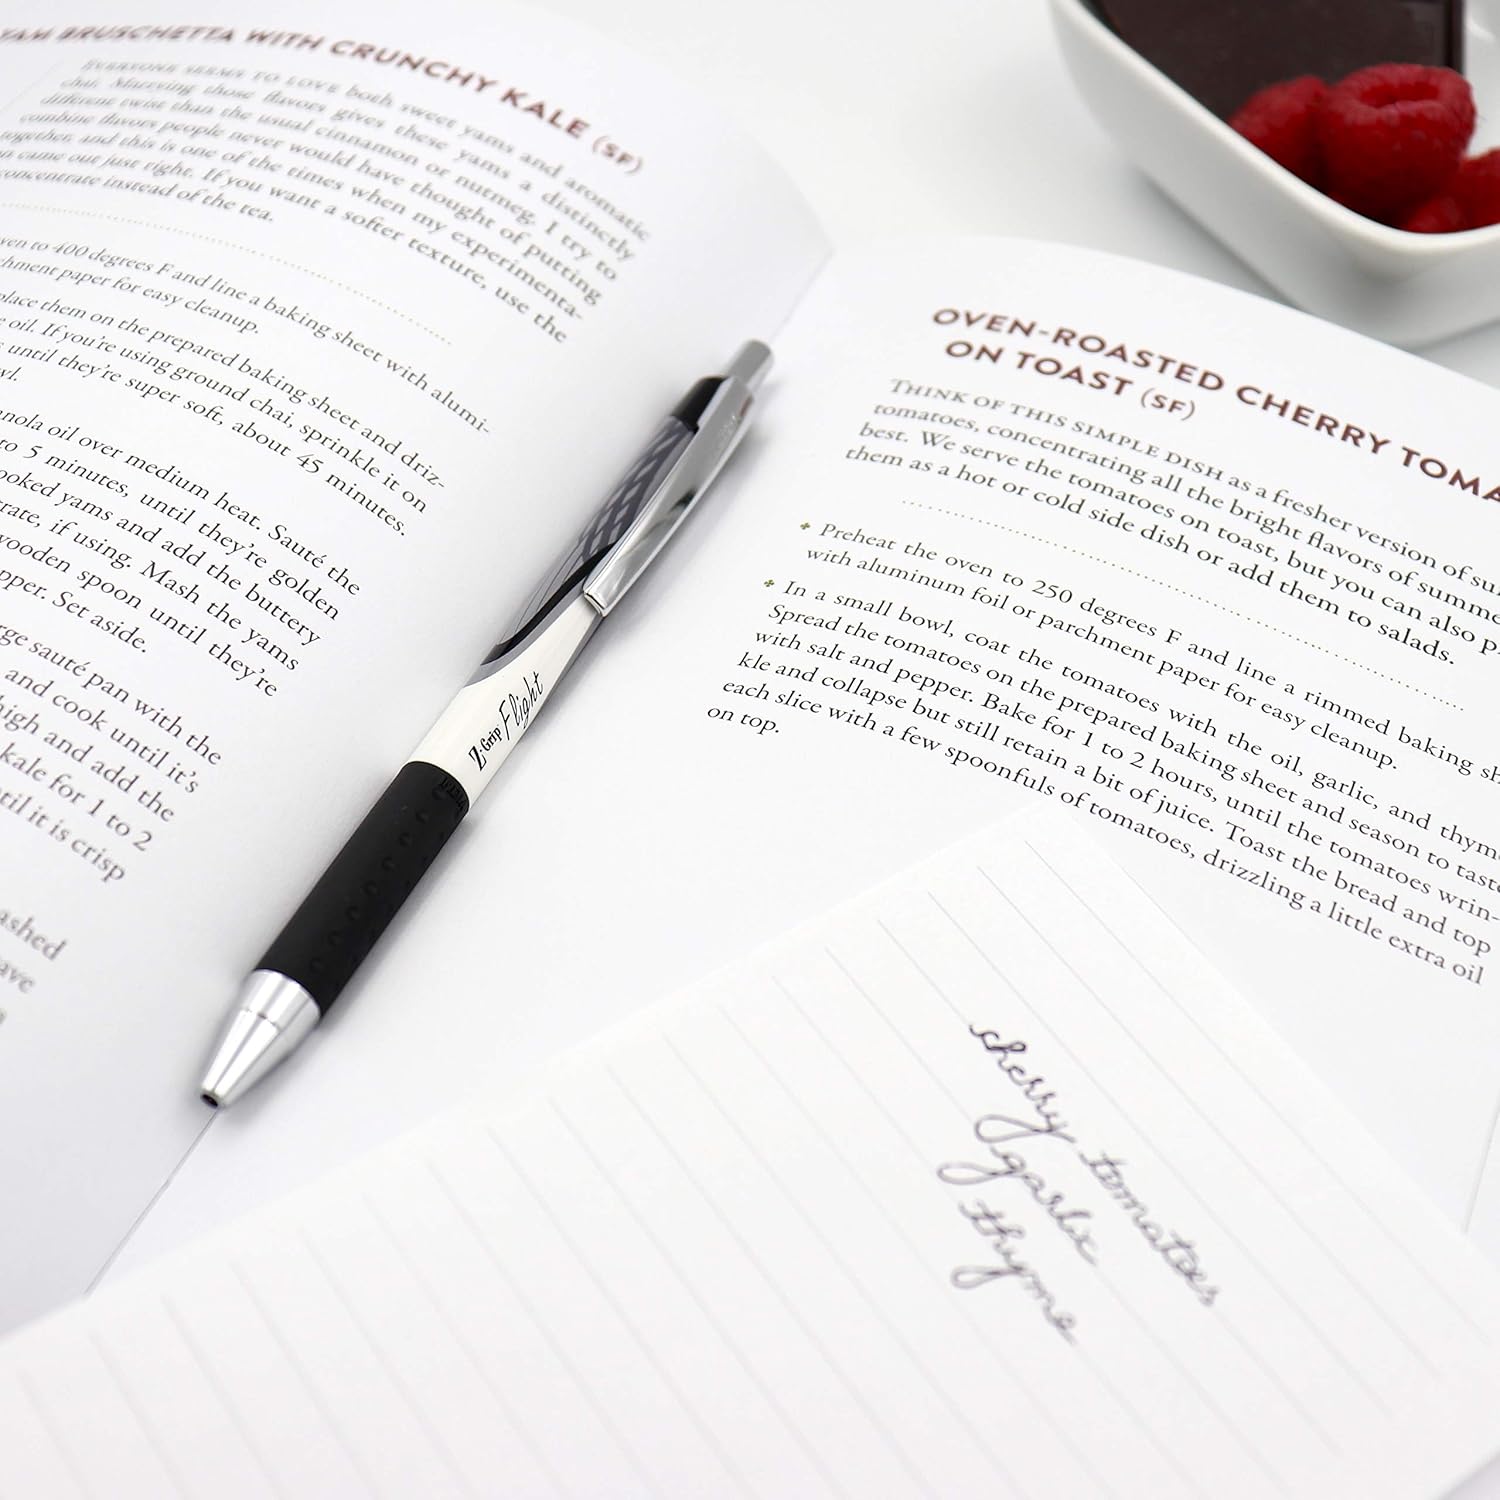 YAM BRUSCHETTA WITH CRUNCHY KALE (SF)
EVERYONE SEEMS TO LOVE both sweet yams and aromatic
chai. Marrying those flavors gives these yams a distinctly
different twist than the usual cinnamon or nutmeg. I try to
combine flavors people never would have thought of putting
together, and this is one of the times when my experimenta-
came out just right. If you want a softer texture, use the
concentrate instead of the tea.
ven to 400 degrees F and line a baking sheet with alumi-
hment paper for easy cleanup.
place them on the prepared baking sheet and driz-
e oil. If you're using ground chai, sprinkle it on
s until they're super soft, about 45 minutes.
wl.
nola oil over medium heat. Sauté the
to 5 minutes, until they're golden
ooked yams and add the buttery
rate, if using. Mash the yams
wooden spoon until they're
pper. Set aside.
rge sauté pan with the
and cook until it's
high and add the
kale for 1 to 2
til it is crisp
ashed
ave
Z-Grip Flight
OVEN-ROASTED CHERRY TOMA
ON TOAST (SF)
THINK OF THIS SIMPLE DISH as a fresher version of su
tomatoes, concentrating all the bright flavors of summe
best. We serve the tomatoes on toast, but you can also p
them as a hot or cold side dish or add them to salads.
Preheat the oven to 250 degrees F and line a rimmed baking sh
with aluminum foil or parchment paper for easy cleanup.
In a small bowl, coat the tomatoes with the oil, garlic, and thyme
Spread the tomatoes on the prepared baking sheet and season to taste
with salt and pepper. Bake for 1 to 2 hours, until the tomatoes wrin-
kle and collapse but still retain a bit of juice. Toast the bread and top
each slice with a few spoonfuls of tomatoes, drizzling a little extra oil
on top.
cherry tomatoes
garlic
thyme